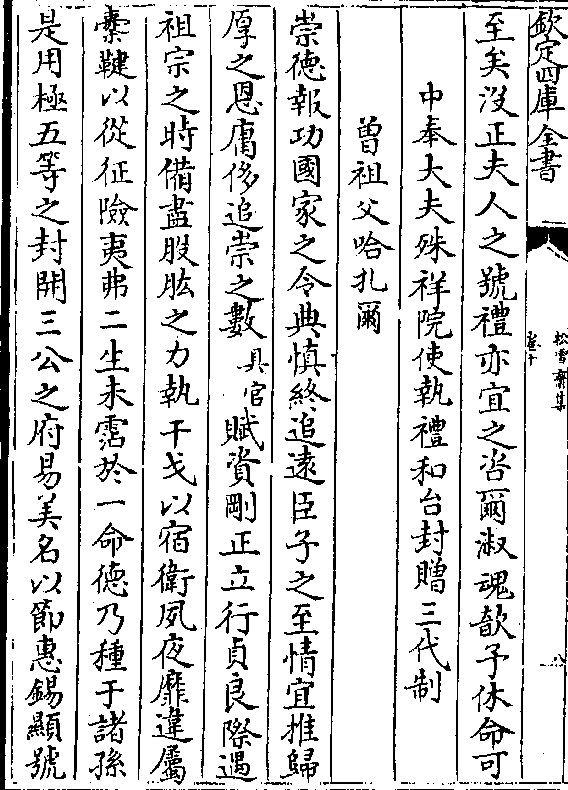 欽定四庫全書
松雪齋集
卷十
八
至矣沒正夫人之號禮亦宜之咨爾淑魂歆予休命可
中奉大夫殊祥院使執禮和台封贈三代制
曾祖父哈扎爾
崇德報功國家之令典慎終追遠臣子之至情宜推歸
厚之恩庸侈追崇之數具官賦資剛正立行貞良際遇
祖宗之時備盡股肱之力執干戈以宿衛夙夜靡違屬
櫜鞬以從征險夷弗二生未霑於一命德乃種于諸孫
是用極五等之封開三公之府易美名以節惠錫顯號